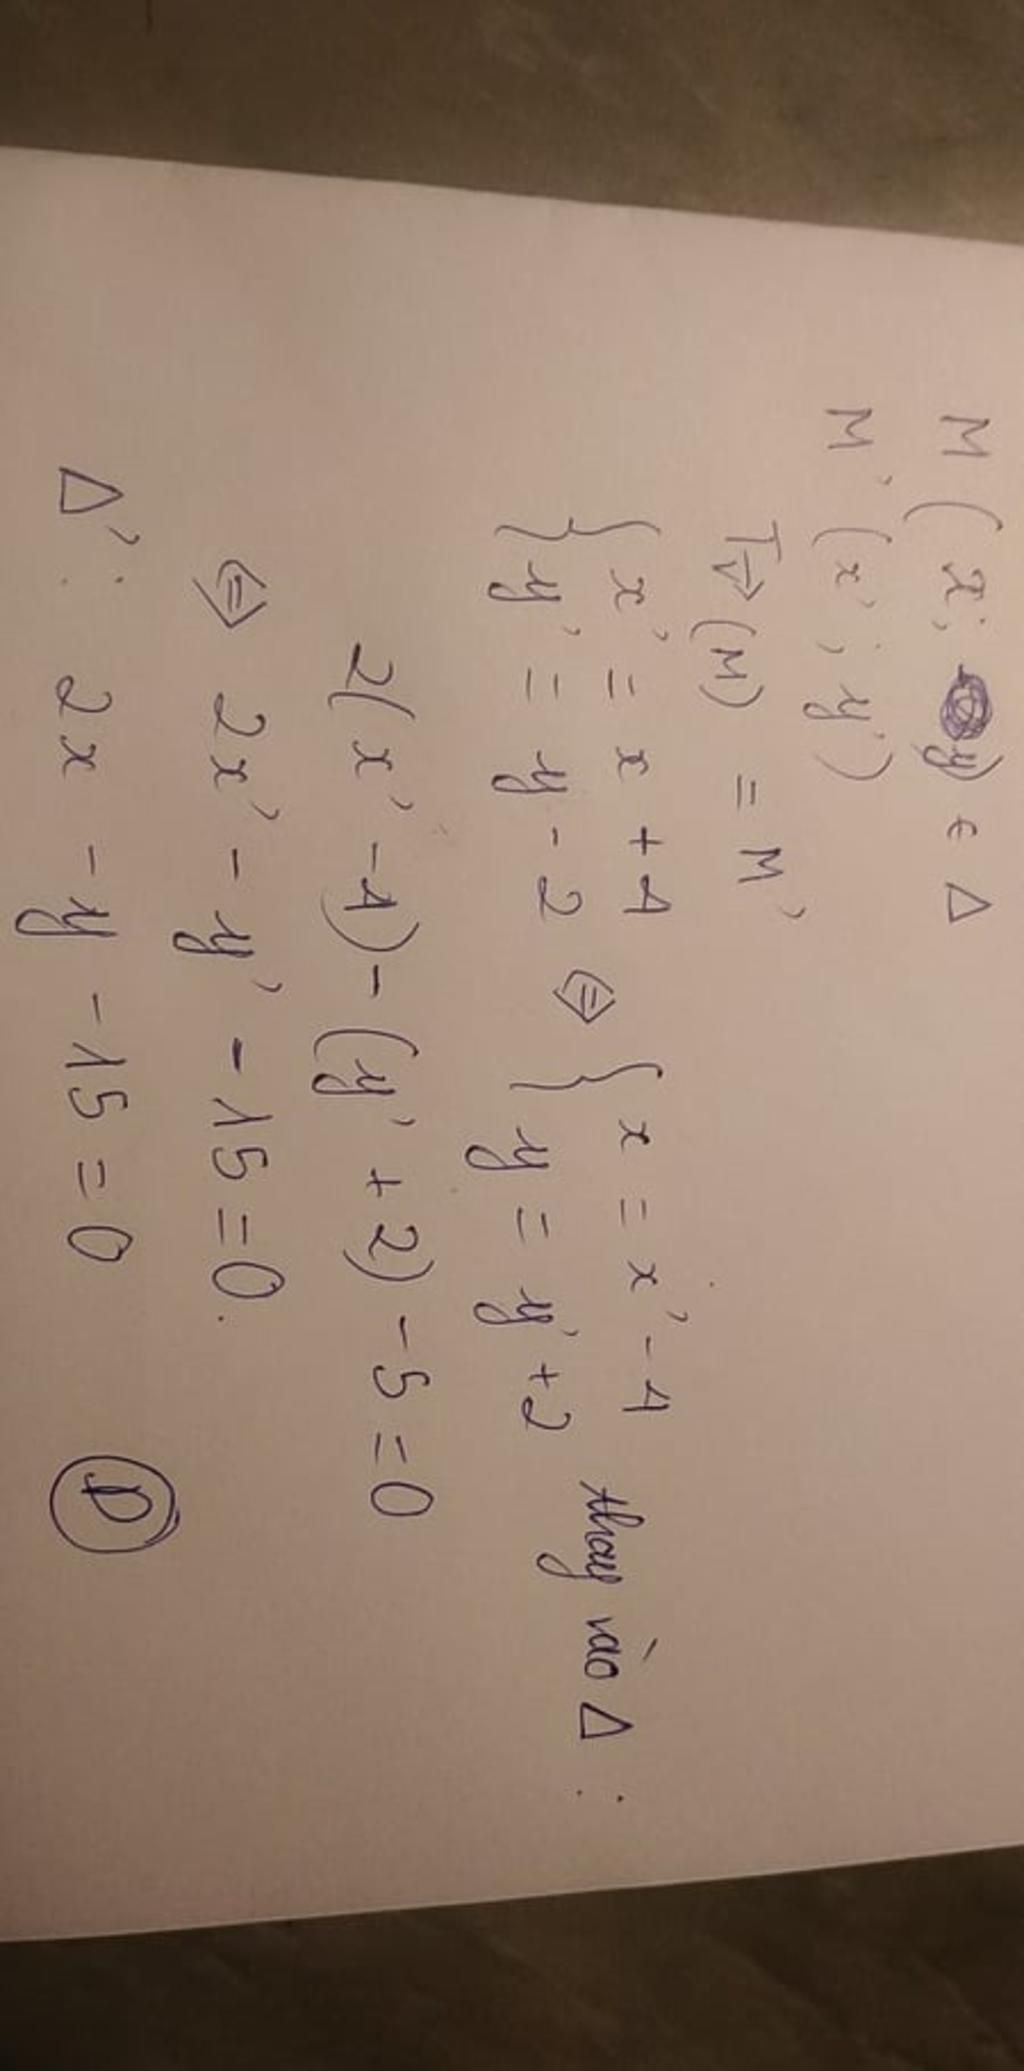 M (x; y) ∈ Δ
M' (x'; y')
T_v⃗ (M) = M'
{ x' = x + 4 { x = x' - 4
{ y' = y - 2 ⇔ { y = y' + 2 thay vào Δ :
2(x' - 4) - (y' + 2) - 5 = 0
⇔ 2x' - y' - 15 = 0.
Δ' : 2x - y - 15 = 0 D